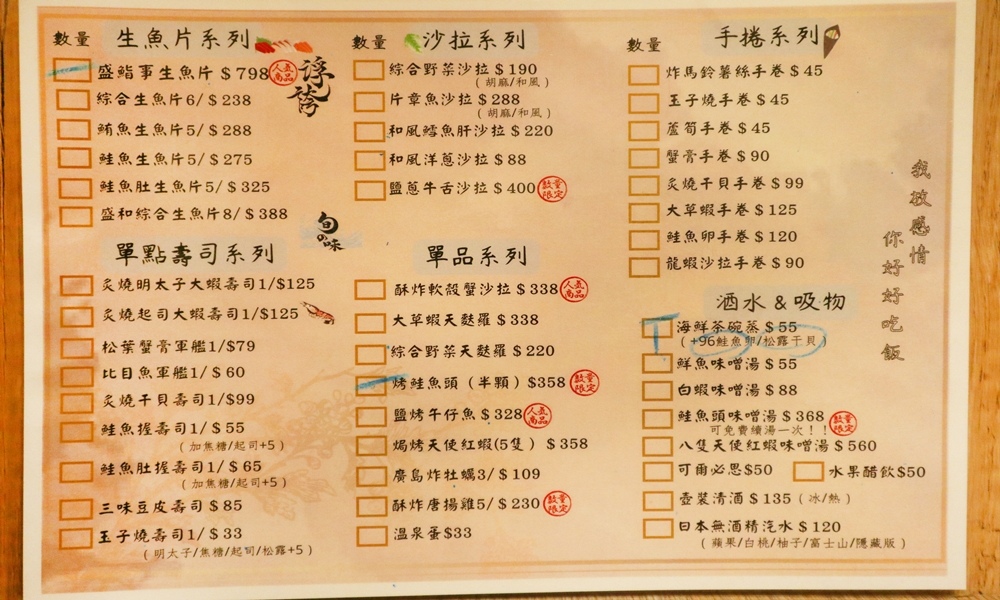 數量 生魚片系列
盛鮨事生魚片 $798 人氣商品
綜合生魚片6/ $238
鮪魚生魚片5/ $288
鮭魚生魚片5/ $275
鮭魚肚生魚片5/ $325
盛和綜合生魚片8/ $388
浮誇
旬の味
單點壽司系列
炙燒明太子大蝦壽司1/$125
炙燒起司大蝦壽司1/$125
松葉蟹膏軍艦1/$79
比目魚軍艦1/ $60
炙燒干貝壽司1/$99
鮭魚握壽司1/ $55
(加焦糖/起司+5)
鮭魚肚握壽司1/ $65
(加焦糖/起司+5)
三味豆皮壽司 $85
玉子燒壽司1/ $33
(明太子/焦糖/起司/松露+5)
數量 沙拉系列
綜合野菜沙拉 $190
(胡麻/和風)
片章魚沙拉 $288
(胡麻/和風)
和風鱈魚肝沙拉 $220
和風洋蔥沙拉 $88
鹽蔥牛舌沙拉 $400 數量限定
單品系列
酥炸軟殼蟹沙拉 $338 人氣商品
大草蝦天麩羅 $338
綜合野菜天麩羅 $220
烤鮭魚頭(半顆) $358 數量限定
鹽烤午仔魚 $328 人氣商品
焗烤天使紅蝦(5隻) $358
廣島炸牡蠣3/ $109
酥炸唐揚雞5/ $230 數量限定
溫泉蛋$33
數量 手捲系列
炸馬鈴薯絲手卷 $45
玉子燒手卷 $45
蘆筍手卷 $45
蟹膏手卷 $90
炙燒干貝手卷 $99
大草蝦手卷 $125
鮭魚卵手卷 $120
龍蝦沙拉手卷 $90
酒水 & 吸物
海鮮茶碗蒸 $55
(+96鮭魚卵/松露干貝)
鮮魚味噌湯 $55
白蝦味噌湯 $88
鮭魚頭味噌湯 $368 數量限定
可免費續湯一次!!
八隻天使紅蝦味噌湯 $560
可爾必思$50 水果醋飲$50
壺裝清酒 $135 (冰/熱)
日本無酒精汽水 $120
(蘋果/白桃/柚子/富士山/隱藏版)
我敢感情
你好好吃飯